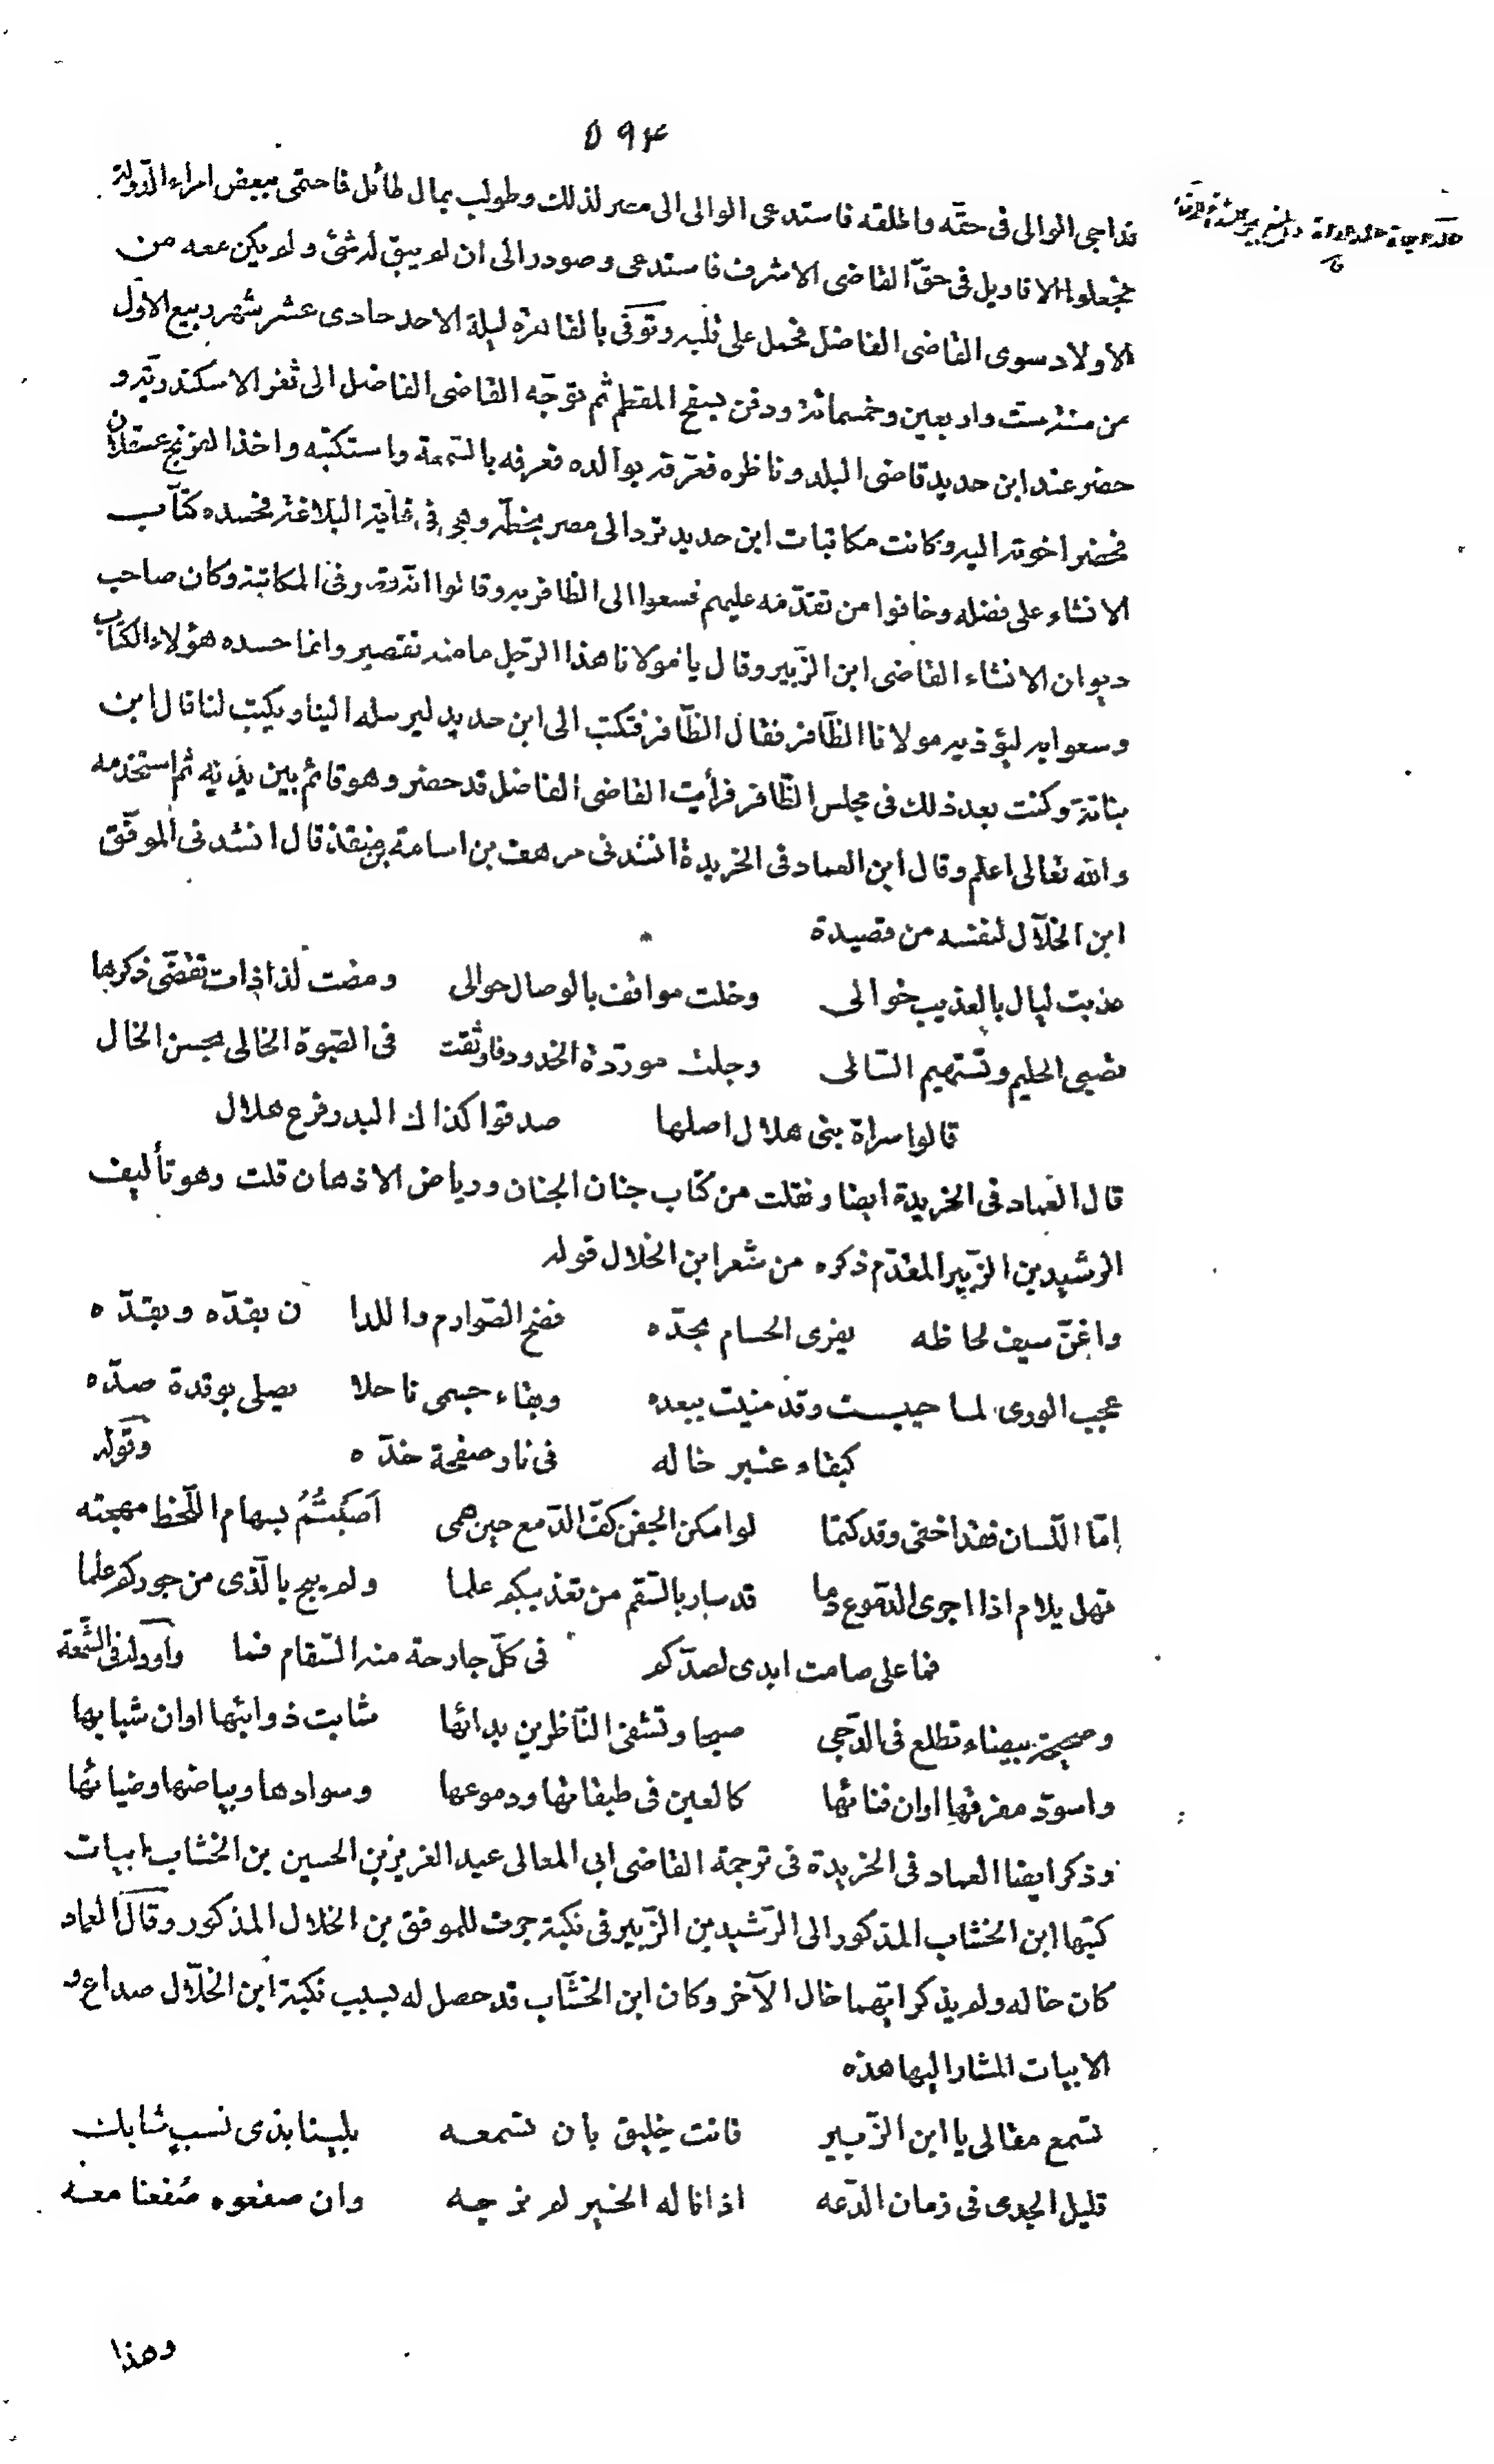 ٥٩٤
قداجى الوالى فى حقه واطلقه فاستدعى الوالى الى مصر لذلك وطولب بمال طائل فاحتمى ببعض امراء الدّولة
فجعلوا الاقاويل فى حقّ القاضى الاشرف فاستدعى وصودر الى ان لم يبق له شئ ولم يكن معه من
الاولاد سوى القاضى الفاضل فحمل على قلبه وتوفى بالقاهرة ليلة الاحد حادى عشر شهر ربيع الاوّل
من سنة ست واربعين وخمسمائة ودفن بسفح المقطم ثم توجّه القاضى الفاضل الى ثغر الاسكندريّة و
حضر عند ابن حديد قاضى البلد وناظره فعرّفه بوالده فعرفه بالسّمعة واستكتبه واخذ الفرنج عسقلان
فحضر اخوته اليه وكانت مكاتبات ابن حديد ترد الى مصر بخطّه وهى فى غاية البلاغة فحسده كتّاب
الانشاء على فضله وخافوا من تقدّمه عليهم فسعوا الى الظافر به وقالوا انّه قصر فى المكاتبة وكان صاحب
ديوان الانشاء القاضى ابن الزّبير وقال يا مولانا هذا الرّجل ما منه تقصير وانما حسده هؤلاء الكتّاب
وسعوا به ليؤذيه مولانا الظّافر فقال الظّافر فتكتب الى ابن حديد ليرسله الينا ويكتب لنا قال ابن
بنانة وكنت بعد ذلك فى مجلس الظّافر فرأيت القاضى الفاضل قد حضر وهو قائم بين يديه ثم استخدمه
والله تعالى اعلم وقال ابن العماد فى الخريدة انشدنى مرهف بن اسامة بن منقذ قال انشدنى الموفّق
ابن الخلّال لنفسه من قصيدة
عذبت ليال بالعذيب خوالى وخلت مواقف بالوصال حوالى ومضت لذاذات تقضّى ذكرها
تصبى الحليم وتستهيم السّالى وجلت مورّدة الخدود فاوثقت فى الصّبوة الخالى بحسن الخال
قالوا سراة بنى هلال اصلها صدقوا كذاك البدر فرع هلال
قال العماد فى الخريدة ايضا ونقلت من كتاب جنان الجنان ورياض الاذهان قلت وهو تأليف
الرشيد بن الزّبير المقدّم ذكره من شعر ابن الخلال قوله
واغنّ سيف لحاظه يفرى الحسام بحدّه فضح الصّوارم واللدا ن بقدّه وبقدّه
عجب الورى لما حييت وقد منيت ببعده وبقاء جسمى ناحلا يصلى بوقدة صدّه
كبقاء عنبر خاله فى نار صفحة خدّه وقوله
امّا اللّسان فقد اخفى وقد كتما لو امكن الجفن كفّ الدّمع حين همى اصبتُمُ بسهام اللّحظ مهجته
فهل يلام اذا اجرى الدّموع دما قد سار بالسّقم من تعذيبكم علما ولم يبح بالّذى من جوركم علما
فما على صامت ابدى لصدّكم فى كلّ جارحة منه السّقام فما واورد له فى الشّمعة
وصحيحة بيضاء تطلع فى الدّجى صبحا وتشفى النّاظرين بدائها شابت ذوائبها اوان شبابها
واسودّ مفرقها اوان فنائها كالعين فى طبقاتها ودموعها وسوادها وبياضها وضيائها
وذكر ايضا العماد فى الخريدة فى ترجمة القاضى ابى المعالى عبد العزيز بن الحسين بن الخشّاب ابيات
كتبها ابن الخشاب المذكور الى الرّشيد بن الزّبير فى نكبة جرت للموفق بن الخلال المذكور وقال العماد
كان خاله ولم يذكر ايّهما خال الآخر وكان ابن الخشّاب قد حصل له بسبب نكبة ابن الخلّال صداع و
الابيات المشار اليها هذه
تسمع مقالى يا ابن الزّبير فانت خليق بان تسمعه بلينا بذى نسب شابك
قليل الجدى فى زمان الدّعه اذا ناله الخير لم نرجه وان صفعوه صُفعنا معه
وهذا